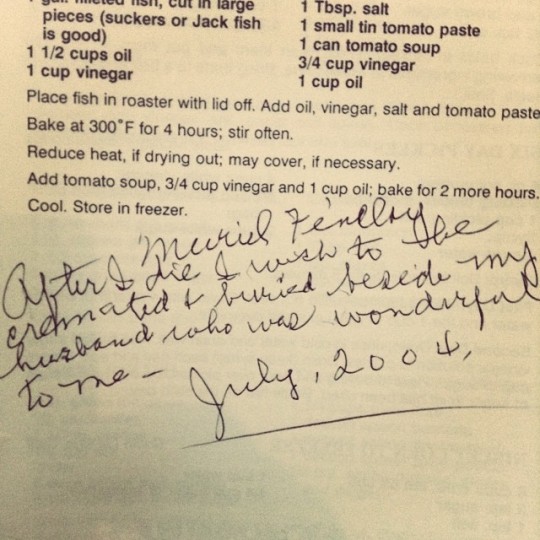 gal. filleted fish, cut in large
pieces (suckers or Jack fish
is good)
1 1/2 cups oil
1 cup vinegar
1 Tbsp. salt
1 small tin tomato paste
1 can tomato soup
3/4 cup vinegar
1 cup oil
Place fish in roaster with lid off. Add oil, vinegar, salt and tomato paste
Bake at 300°F for 4 hours; stir often.
Reduce heat, if drying out; may cover, if necessary.
Add tomato soup, 3/4 cup vinegar and 1 cup oil; bake for 2 more hours.
Cool. Store in freezer.
Muriel
After I die I wish to be
cremated & buried beside my
husband who was wonderful
to me -
July, 2004.